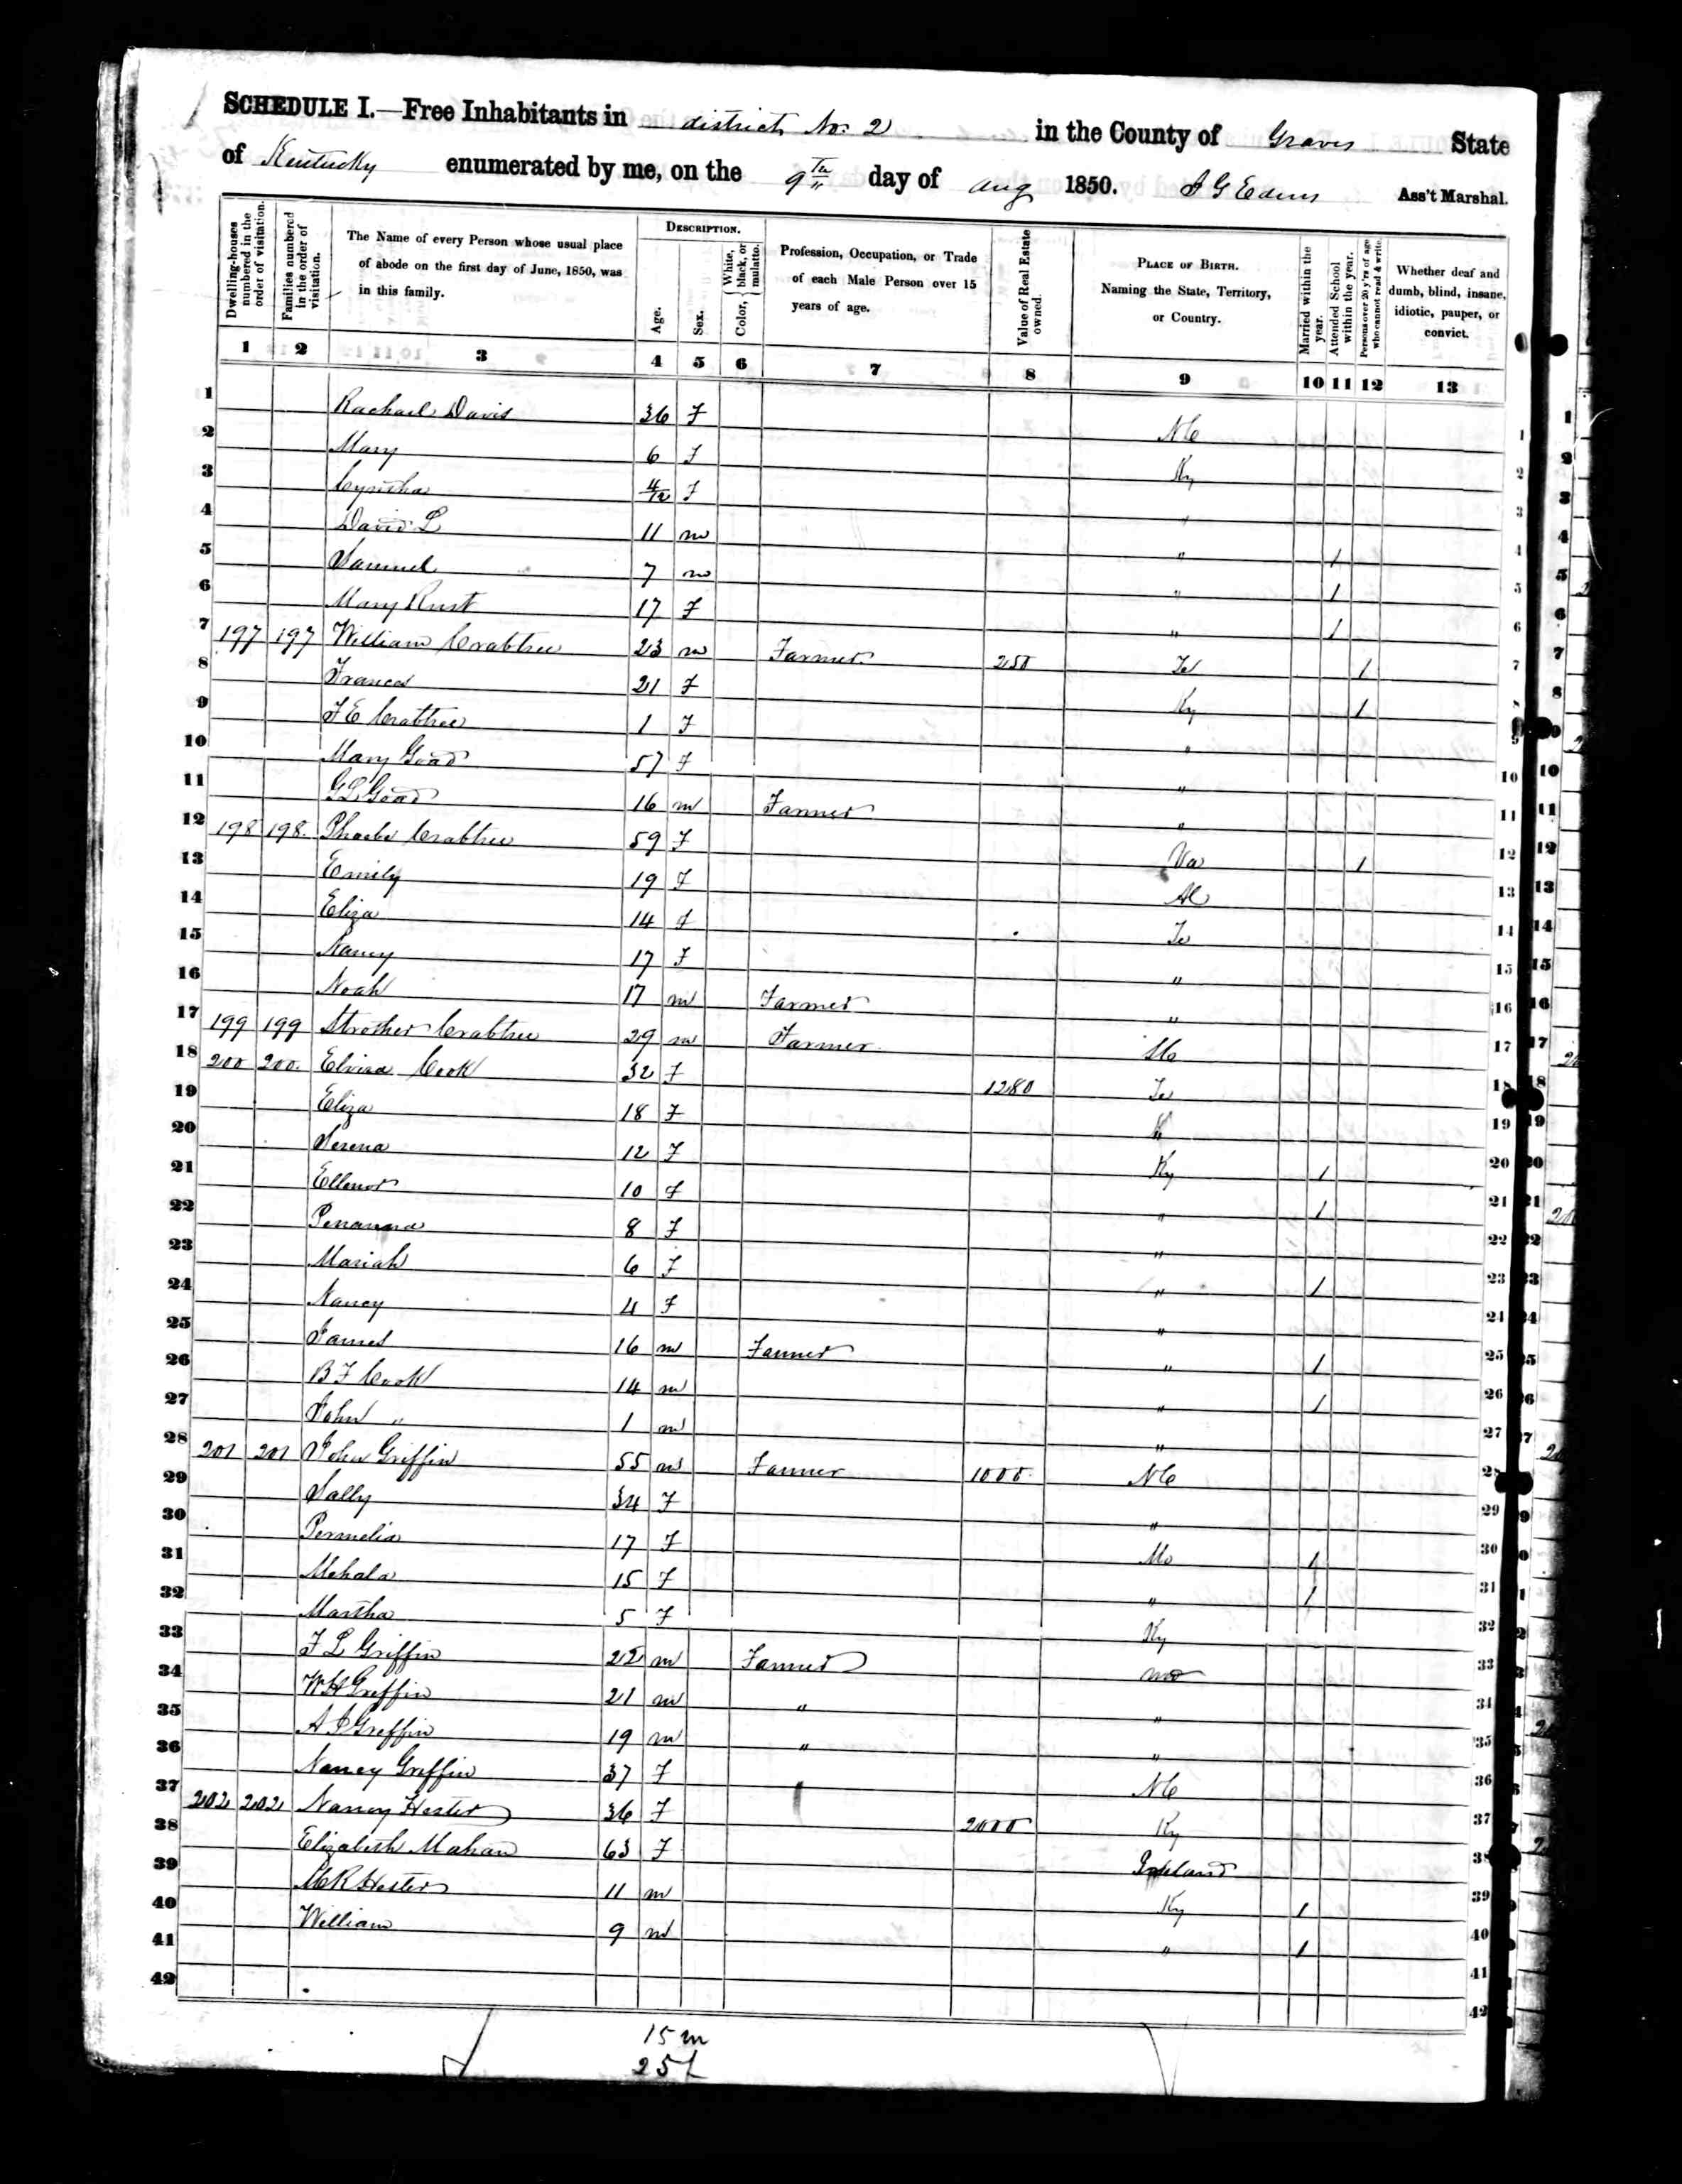 SCHEDULE I.—Free Inhabitants in district No. 2 in the County of Graves State
of Kentucky enumerated by me, on the 9th day of Aug 1850. J G Edens Ass't Marshal.
Dwelling-houses numbered in the order of visitation.
Families numbered in the order of visitation.
The Name of every Person whose usual place of abode on the first day of June, 1850, was in this family.
DESCRIPTION.
Age.
Sex.
Color, { White, black, or mulatto.
Profession, Occupation, or Trade of each Male Person over 15 years of age.
Value of Real Estate owned.
PLACE OF BIRTH. Naming the State, Territory, or Country.
Married within the year.
Attended School within the year.
Persons over 20 y'rs of age who cannot read & write.
Whether deaf and dumb, blind, insane, idiotic, pauper, or convict.
1 2 3 4 5 6 7 8 9 10 11 12 13
1 Rachael Davis 36 F NC 1
2 Mary 6 F Ky 2
3 Cyntha 4/12 F " 3
4 David L 11 m " 1 4
5 Samuel 7 m " 1 5
6 Mary Rust 17 F " 1 6
7 197 197 William Crabtree 23 m Farmer 250 Te 1 7
8 Frances 21 F Ky 1 8
9 F E Crabtree 1 F " 9
10 Mary Goad 57 F " 10
11 G L Goad 16 m Farmer " 11
12 198 198. Phoebe Crabtree 59 F Va 1 12
13 Emily 19 F Al 13
14 Eliza 14 F Te 14
15 Nancy 17 F " 15
16 Noah 17 m Farmer " 16
17 199 199 Strother Crabtree 29 m Farmer 17
18 200 200. Elvira Cook 32 F 1280 Te 18
19 Eliza 18 F 19
20 Serena 12 F Ky 1 20
21 Ellenor 10 F " 1 21
22 8 F " 22
23 Mariah 6 F " 1 23
24 Nancy 4 F " 24
25 James 16 m Farmer " 1 25
26 B F Cook 14 m " 1 26
27 John " 1 m " 27
28 201 201 John Griffin 55 m Farmer 1000 NC 28
29 Sally 34 F " 29
30 Permelia 17 F Mo 1 30
31 Mehala 15 F " 1 31
32 Martha 5 F Ky 32
33 F L Griffin 22 m Farmer mo 33
34 W H Griffin 21 m " " 34
35 A J Griffin 19 m " " 35
36 Nancy Griffin 37 F NC 36
37 202 202 Nancy Hester 36 F 2000 Ky 37
38 Elizabeth Mahan 63 F Ireland 38
39 M R Hester 11 m Ky 1 39
40 William 9 m " 1 40
41 41
42 42
15 m
25 f